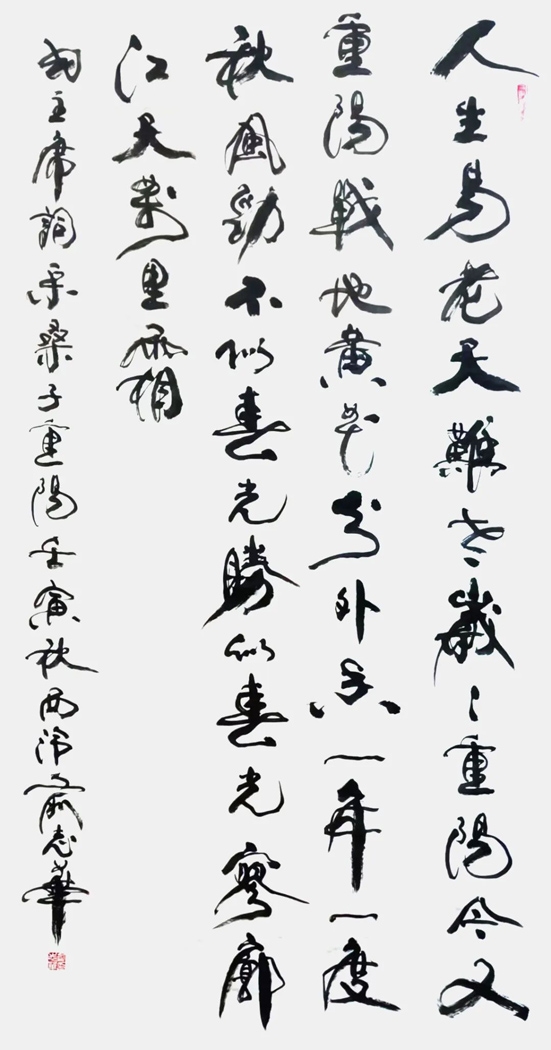 人生易老天難老歲〻重陽今又
重陽戰地黃花分外香一年一度
秋風勁不似春光勝似春光寥廓
江天萬里霜
主席詞采桑子重陽壬寅秋西泠俞志華